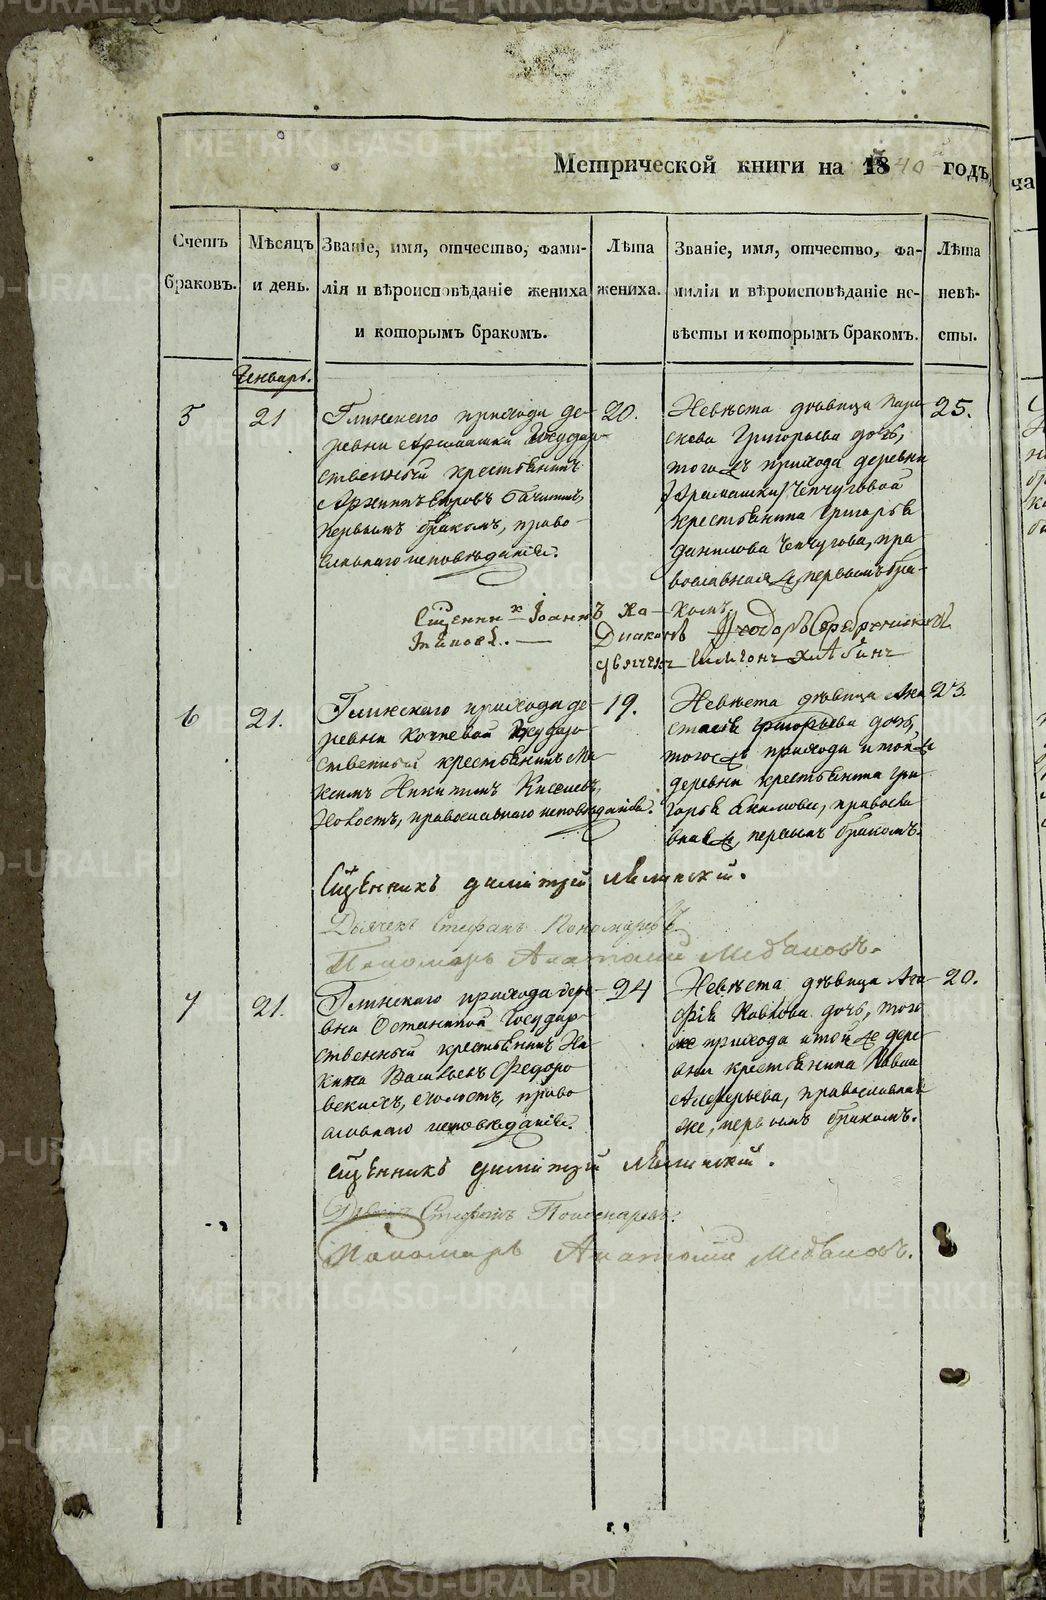 Метрической книги на 1840 годъ,
Счетъ браковъ.
Мѣсяцъ и день.
Званіе, имя, отчество, фами-
лія и вѣроисповѣданіе жениха
и которымъ бракомъ.
Лѣта жениха.
Званіе, имя, отчество, фа-
милія и вѣроисповѣданіе не-
вѣсты и которымъ бракомъ.
Лѣта невѣ-
сты.
Январь.
5
21
Глинскаго прихода де-
ревни Арамашки Государ-
ственный крестьянинъ
Архиппъ
первымъ бракомъ, право-
славнаго исповѣданія.
20.
Невѣста дѣвица Пара-
скева Григорьева дочь,
того же прихода деревни
Арамашки / Чепчуговой
крестьянина Григорья
Данилова Чепчугова, пра-
вославная же, первымъ бра-
комъ.
25.
Священникъ Іоаннъ
Діаконъ Ѳеодоръ Серебренниковъ
6
21.
Глинскаго прихода де-
ревни Кочневой Государ-
ственный крестьянинъ Ма-
ксимъ Никитинъ Киселевъ,
холостъ, православнаго исповѣданія.
19.
Невѣста дѣвица Ана-
стасія Григорьева дочь,
того же прихода и той же
деревни крестьянина Гри-
горья Акимова, правосла-
вная же, первымъ бракомъ.
23.
Священникъ Димитрій
Дьячекъ Стефанъ Пономаревъ
Пономарь Анатолій
7
21.
Глинскаго прихода дере-
вни Останиной Государ-
ственный крестьянинъ Ни-
кита Васильевъ Федоро-
вскихъ, холостъ, право-
славнаго исповѣданія.
24
Невѣста дѣвица Ага-
фія Павлова дочь, того
же прихода и той же дере-
вни крестьянина Павла
Алферьева, православная
же, первымъ бракомъ.
20.
Священникъ Димитрій
Дьячекъ Стефанъ Пономаревъ.
Пономарь Анатолій
METRIKI.GASO-URAL.RU